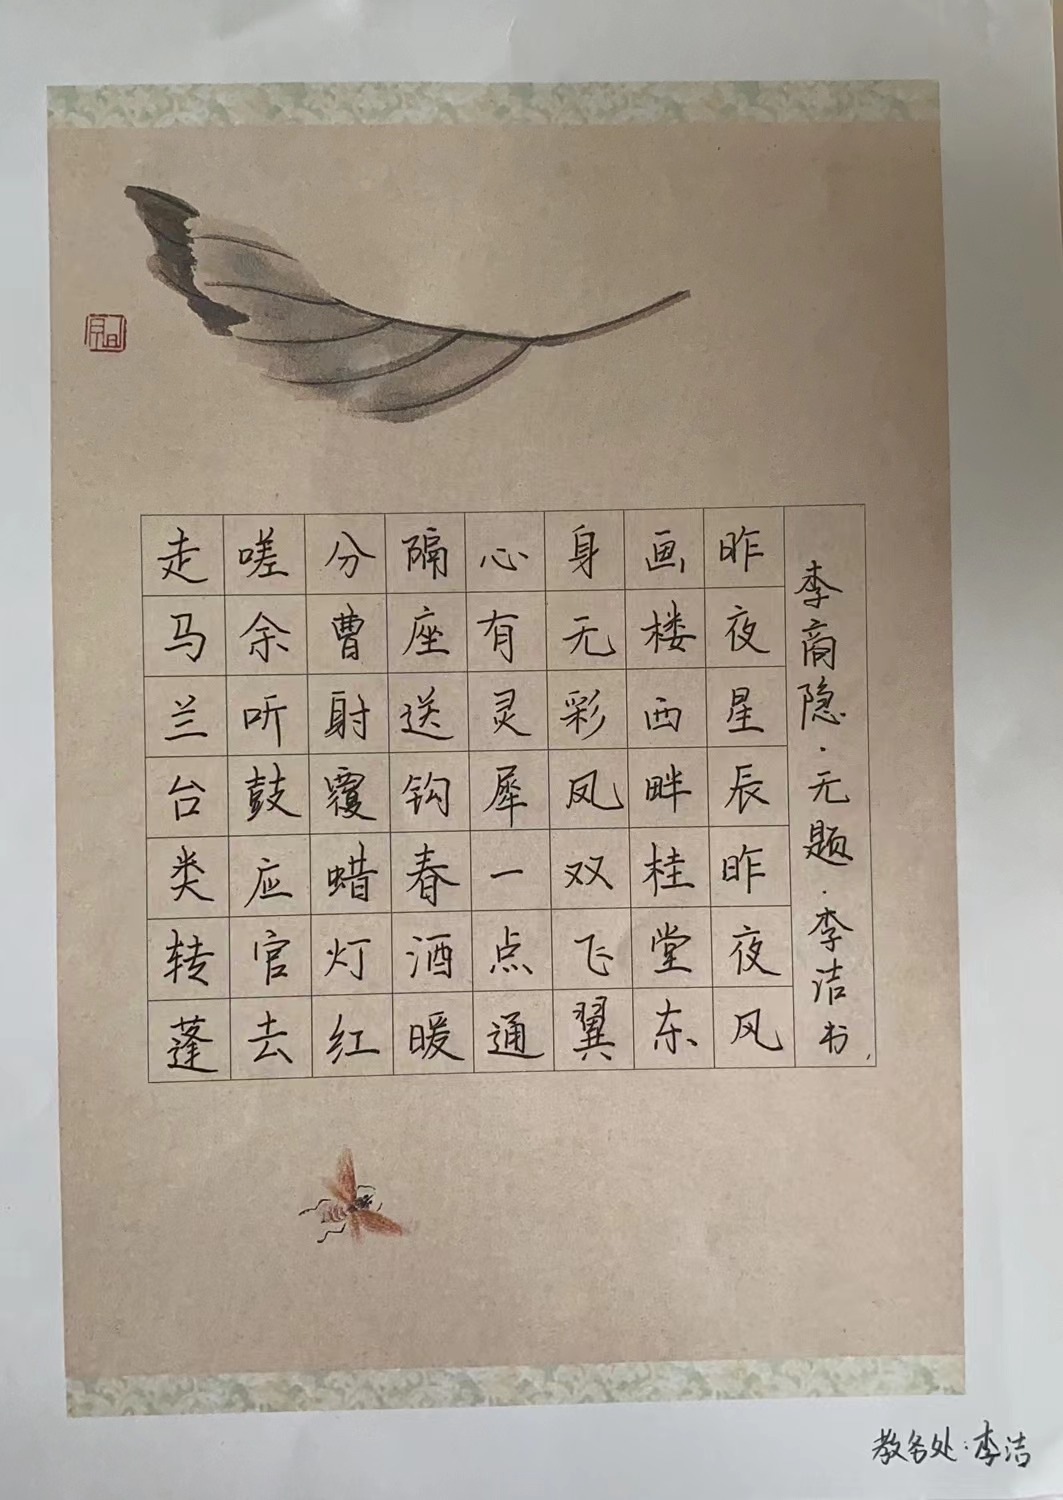 李商隐·无题·李洁书
昨夜星辰昨夜风
画楼西畔桂堂东
身无彩凤双飞翼
心有灵犀一点通
隔座送钩春酒暖
分曹射覆蜡灯红
嗟余听鼓应官去
走马兰台类转蓬
教务处:李洁